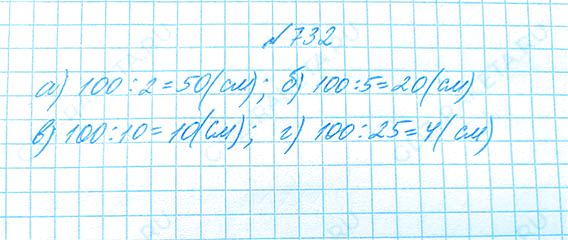 №732
а) 100 : 2 = 50 (см); б) 100 : 5 = 20 (см)
в) 100 : 10 = 10 (см); г) 100 : 25 = 4 (см)